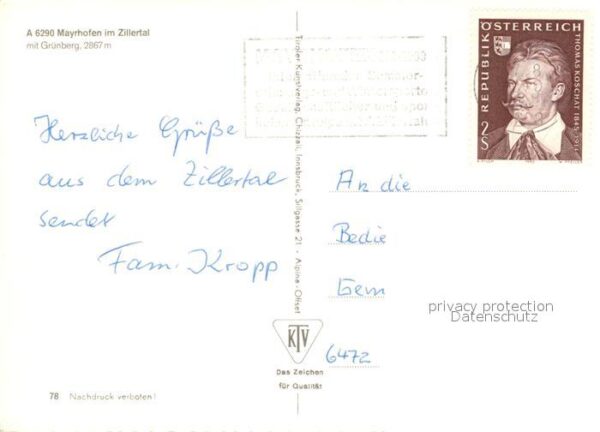 A 6290 Mayrhofen im Zillertal
mit Grünberg, 2867 m
Herzliche Grüße
aus dem Zillertal
sendet
Fam. Kropp
Tiroler Kunstverlag, Chizzali, Innsbruck, Sillgasse 21 - Alpina-Offset
KTV
Das Zeichen
für Qualität
78 Nachdruck verboten!
REPUBLIK ÖSTERREICH
THOMAS KOSCHAT 1845-1914
2 S
An die
Bedie
Gem
6472
privacy protection
Datenschutz